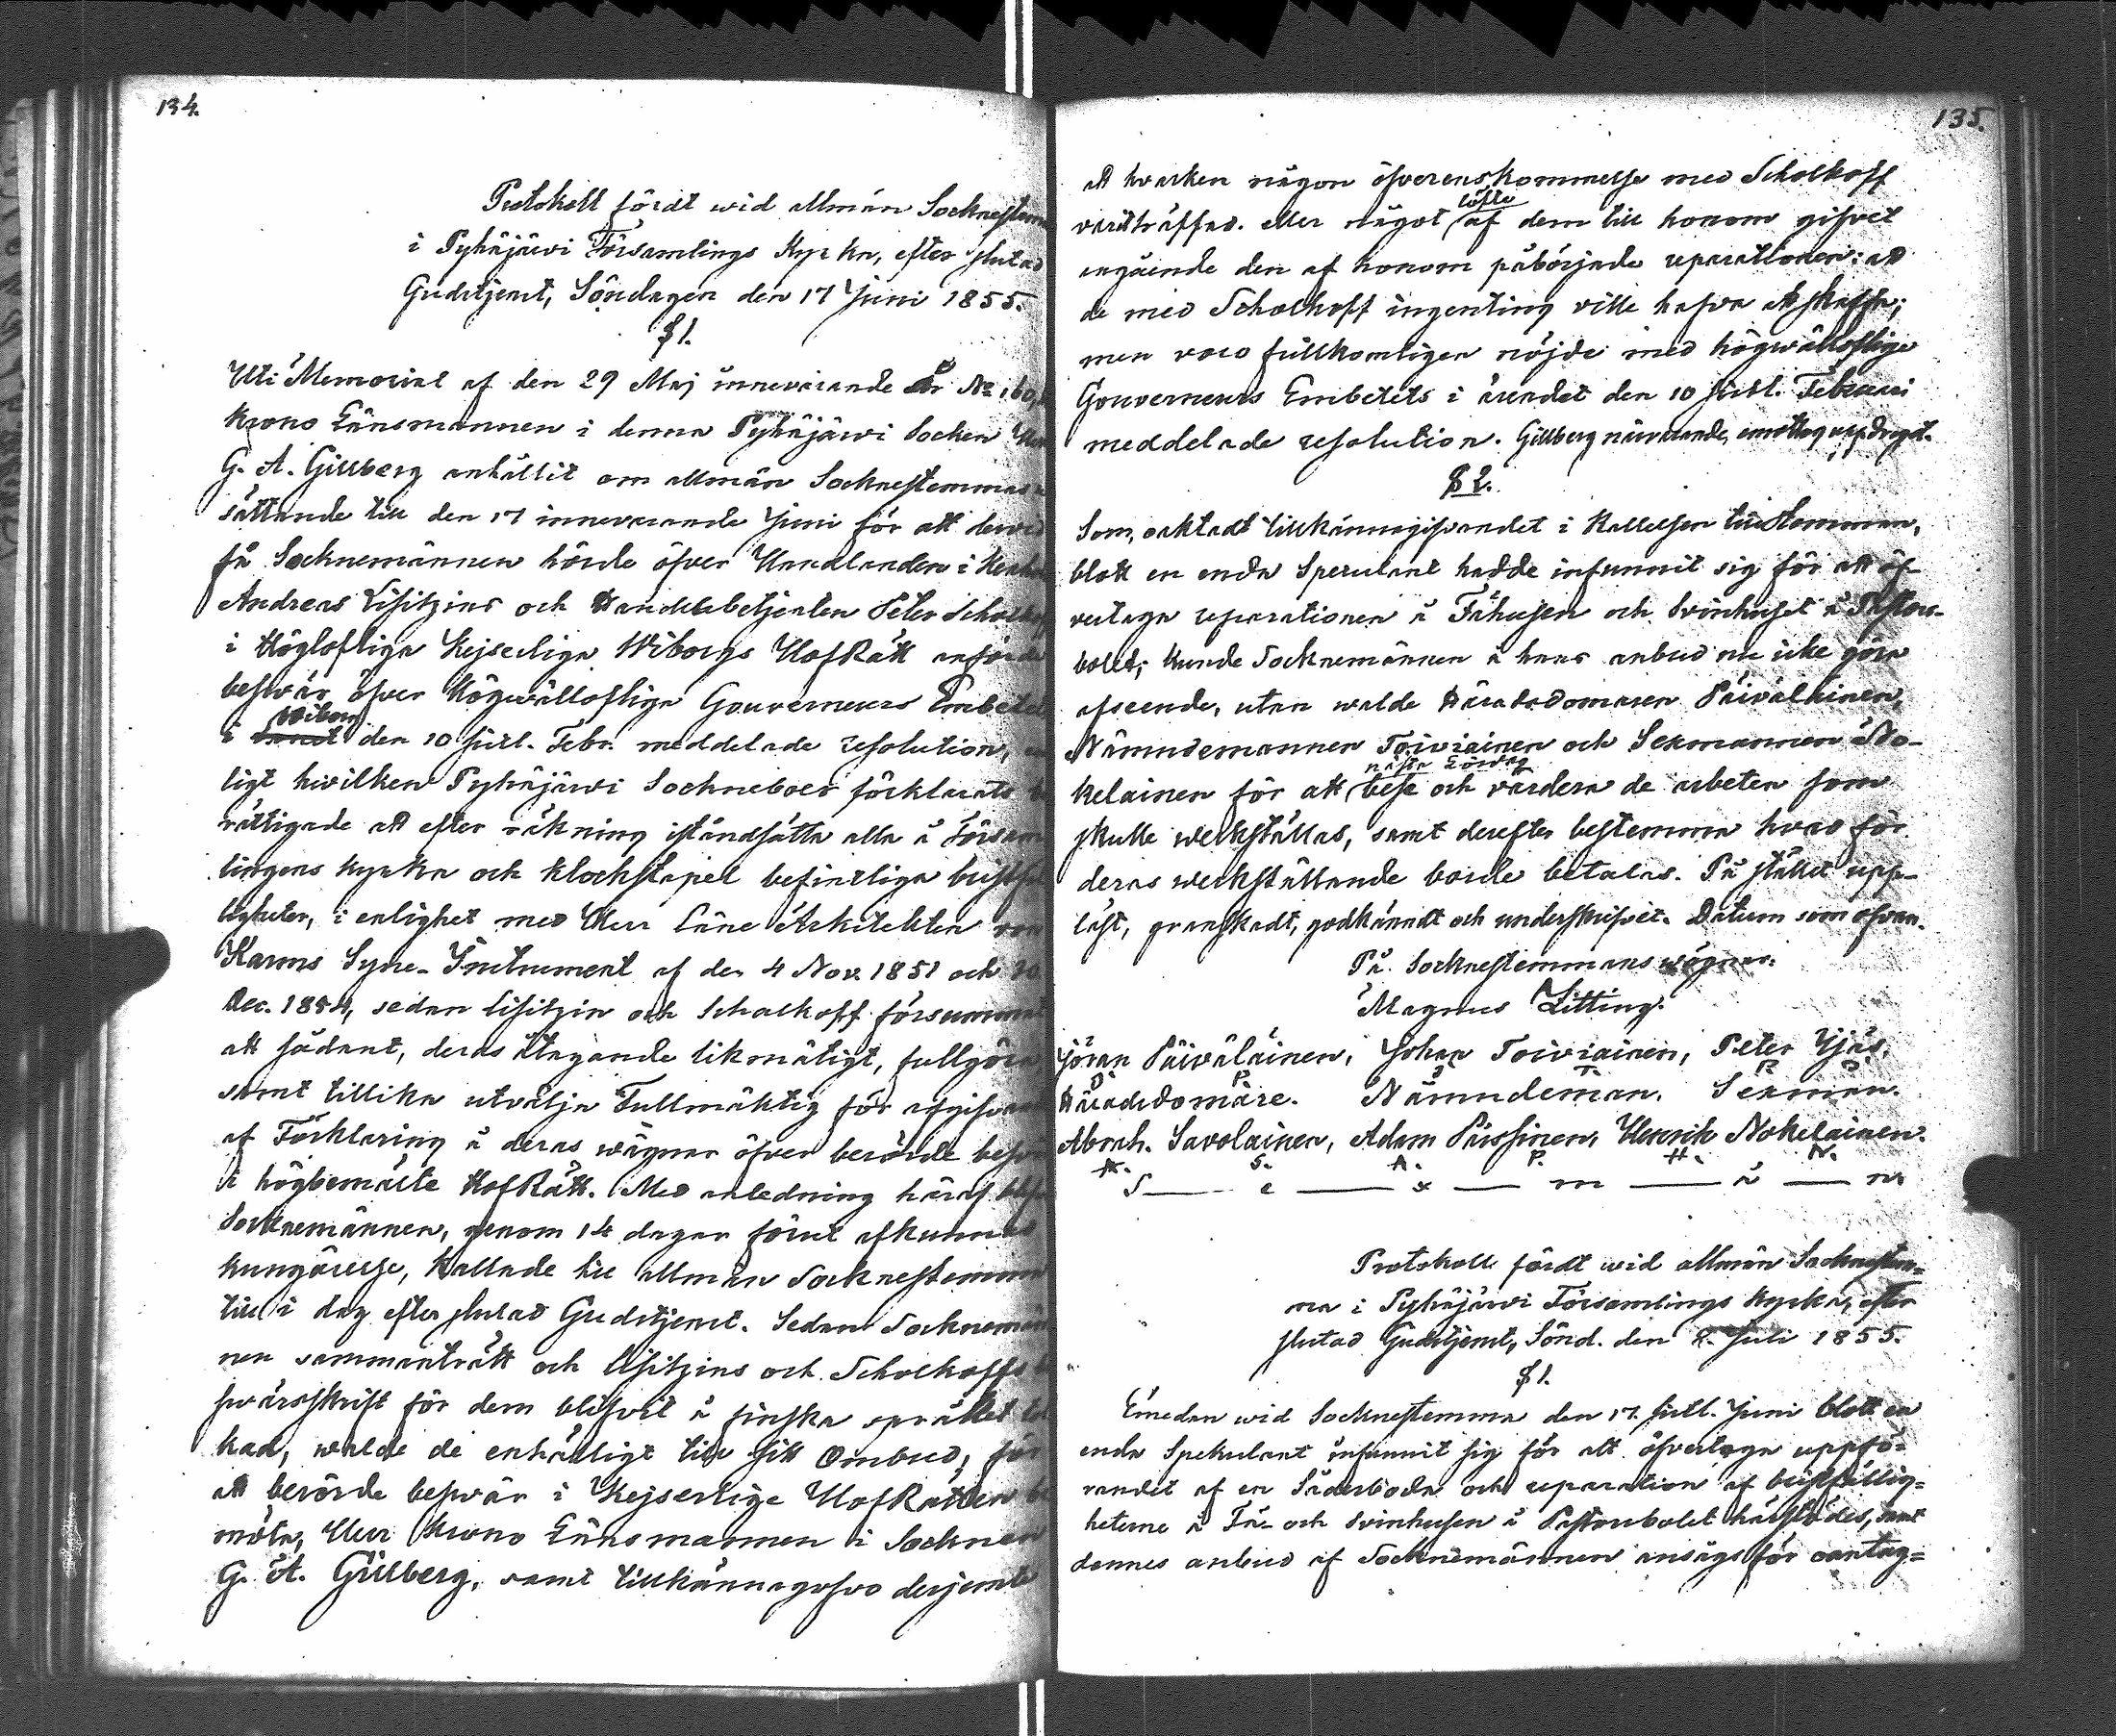 134.
Protokoll fördt wid allmän Socknestem
i Pyhäjärvi Församlings Kyrka, efter slutad
Gudstjenst, Söndagen den 17 Juni 1855.
§ 1.
Uti Memorial af den 29 Maj innevarande år No 160,
Krono Länsmannen i denna Pyhäjärvi Socken Herr
G. A. Gillberg anhållit om allmän Socknestemmas
sättande till den 17 innevarande Juni för att dervid
få Socknemännen hörde öfver Handlanden i
Andreas Lisitzins och Handelsbetjenten Peter Scholkoff
i Höglofliga Kejserliga Wiborgs HofRätt anförde
besvär öfver Högwällofliga Gouverneurs Embetets
i Wiborg den 10 sistl. Febr. meddelade resolution, en
ligt hvilken Pyhäjärvi Sockneboer förklarats be
rättigade att efter räkning iståndsätta alla å Försam
lingens kyrka och klockstapel befintliga bristfäl
ligheter, i enlighet med Herr Läne Arkitekten von
Karms Syne-Instrument af den 4 Nov. 1851 och 20
Dec. 1854, sedan Lisitzin och Scholkoff försummat
att sådant, deras åtagande likmätigt, fullgöra
samt tillika utvälja Fullmäktig för afgifvan
af Förklaring å deras wägnar öfver berörde besvär
i högbemälte HofRätt. Med anledning häraf blefvo
Socknemännen, genom 14 dagar förut afkunnad
kungörelse, kallade till allmän Socknestemma
till i dag efter slutad Gudstjenst. Sedan Sockneman
nen sammanträdt och Lisitzins och Scholkoffs be
svärsskrift för dem blifvit å finska språket tol
kad, walde de enhälligt till sitt Ombud, för
att berörde besvär i Kejserlige HofRätten be
möta, Herr Krono Länsmannen i Socknen
G. A. Gillberg, samt tillkännagofvo desjemte
135.
att hvarken någon öfverenskommelse med Scholkoff
varit träffad. eller något löfte af dem till honom gifvet
angående den af honom påbörjade reparationen: att
de med Scholkoff ingenting ville hafva att skaffa;
men voro fullkomligen nöjde med högwällofliga
Gouverneurs Embetets i ärendet den 10 sistl. Februari
meddelade resolution. Gillberg närvarande, emottog uppdraget.
§ 2.
Som, oaktadt tillkännagifvandet i kallelsen till Stemman,
blott en enda Spekulant hadde infunnit sig för att öf-
vertaga reparationen å Fähusen och Svinhuset å Pastors-
bolet; kunde Socknemännen å hans anbud nu icke göra
afseende, utan walde Häradsdomaren Päiväläinen,
Nämndemannen Toiviainen och Sexmannen No-
kelainen för att nästa Lördag bese och värdera de arbeten som
skulle werkställas, samt derefter bestemma hvad för
deras werkställande borde betalas. På stället upp-
läst, granskadt, godkänndt och underskrifvet. Datum som ofvan.
På Socknestemmans wägnar:
Magnus Zitting.
Jöran Päiväläinen, Johan Toiviainen, Peter Yjäs.
Häradsdomare. Nämndeman. Sexman.
Abrah. Savolainen, Adam Pärssinen, Henrik Nokelainen.
A. S. A. P. H. N.
S — e — x — m — ä — n
Protokoll fördt wid allmän Socknestem=
ma i Pyhäjärvi Församlings Kyrka, efter
slutad Gudstjenst, Sönd. den 8. Juli 1855.
§ 1.
Emedan wid Socknestemma den 17. sistl. Juni blott en
enda Spekulant infunnit sig för att öfvertaga uppfö=
randet af en Sädesboda och reparation af bristfällig=
heterne å Fä- och Svinhusen å Pastorsbolet härstädes, samt
dennes anbud af Socknemännen ansågs för oantag=